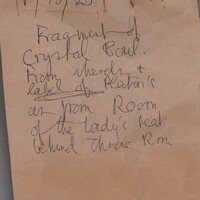 Fragment of
Crystal Bowl.
From sherds +
label of Platon's
as from Room
of the Lady's Seat
behind Throne Rm.